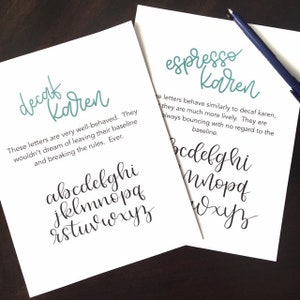 decaf
karen
These letters are very well-behaved. They
wouldn't dream of leaving their baseline
and breaking the rules. Ever.
abcdefghi
jklmnopq
rstuvwxyz
espresso
karen
letters behave similarly to decaf karen,
they are much more lively. They are
always bouncing with no regard to the
baseline.
abcdefghi
jklmnopq
rstuvwxyz